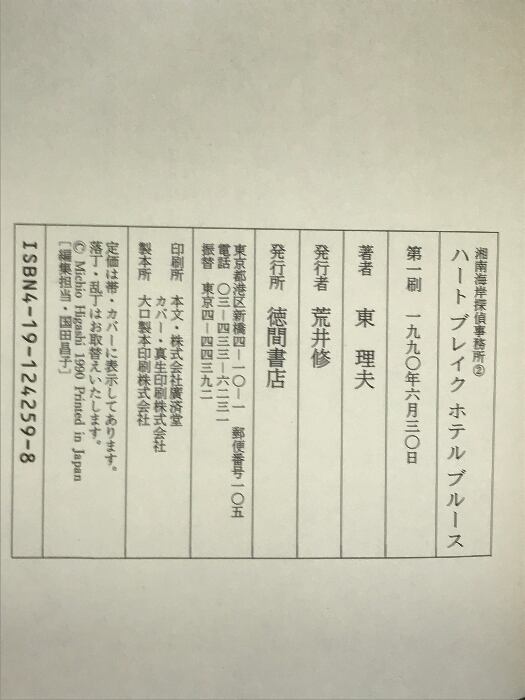 湘南海岸探偵事務所②
ハートブレイク ホテル ブルース
第一刷 一九九〇年六月三〇日
著者 東 理夫
発行者 荒井修
発行所 徳間書店
東京都港区新橋四—一〇—一 郵便番号一〇五
電話 〇三—四三三—六二三一
振替 東京四—四四三九二
印刷所 本文・株式会社廣済堂
カバー・真生印刷株式会社
製本所 大口製本印刷株式会社
定価は帯・カバーに表示してあります。
落丁・乱丁はお取替えいたします。
© Michio Higashi 1990 Printed in Japan
［編集担当・国田昌子］
ISBN4-19-124259-8